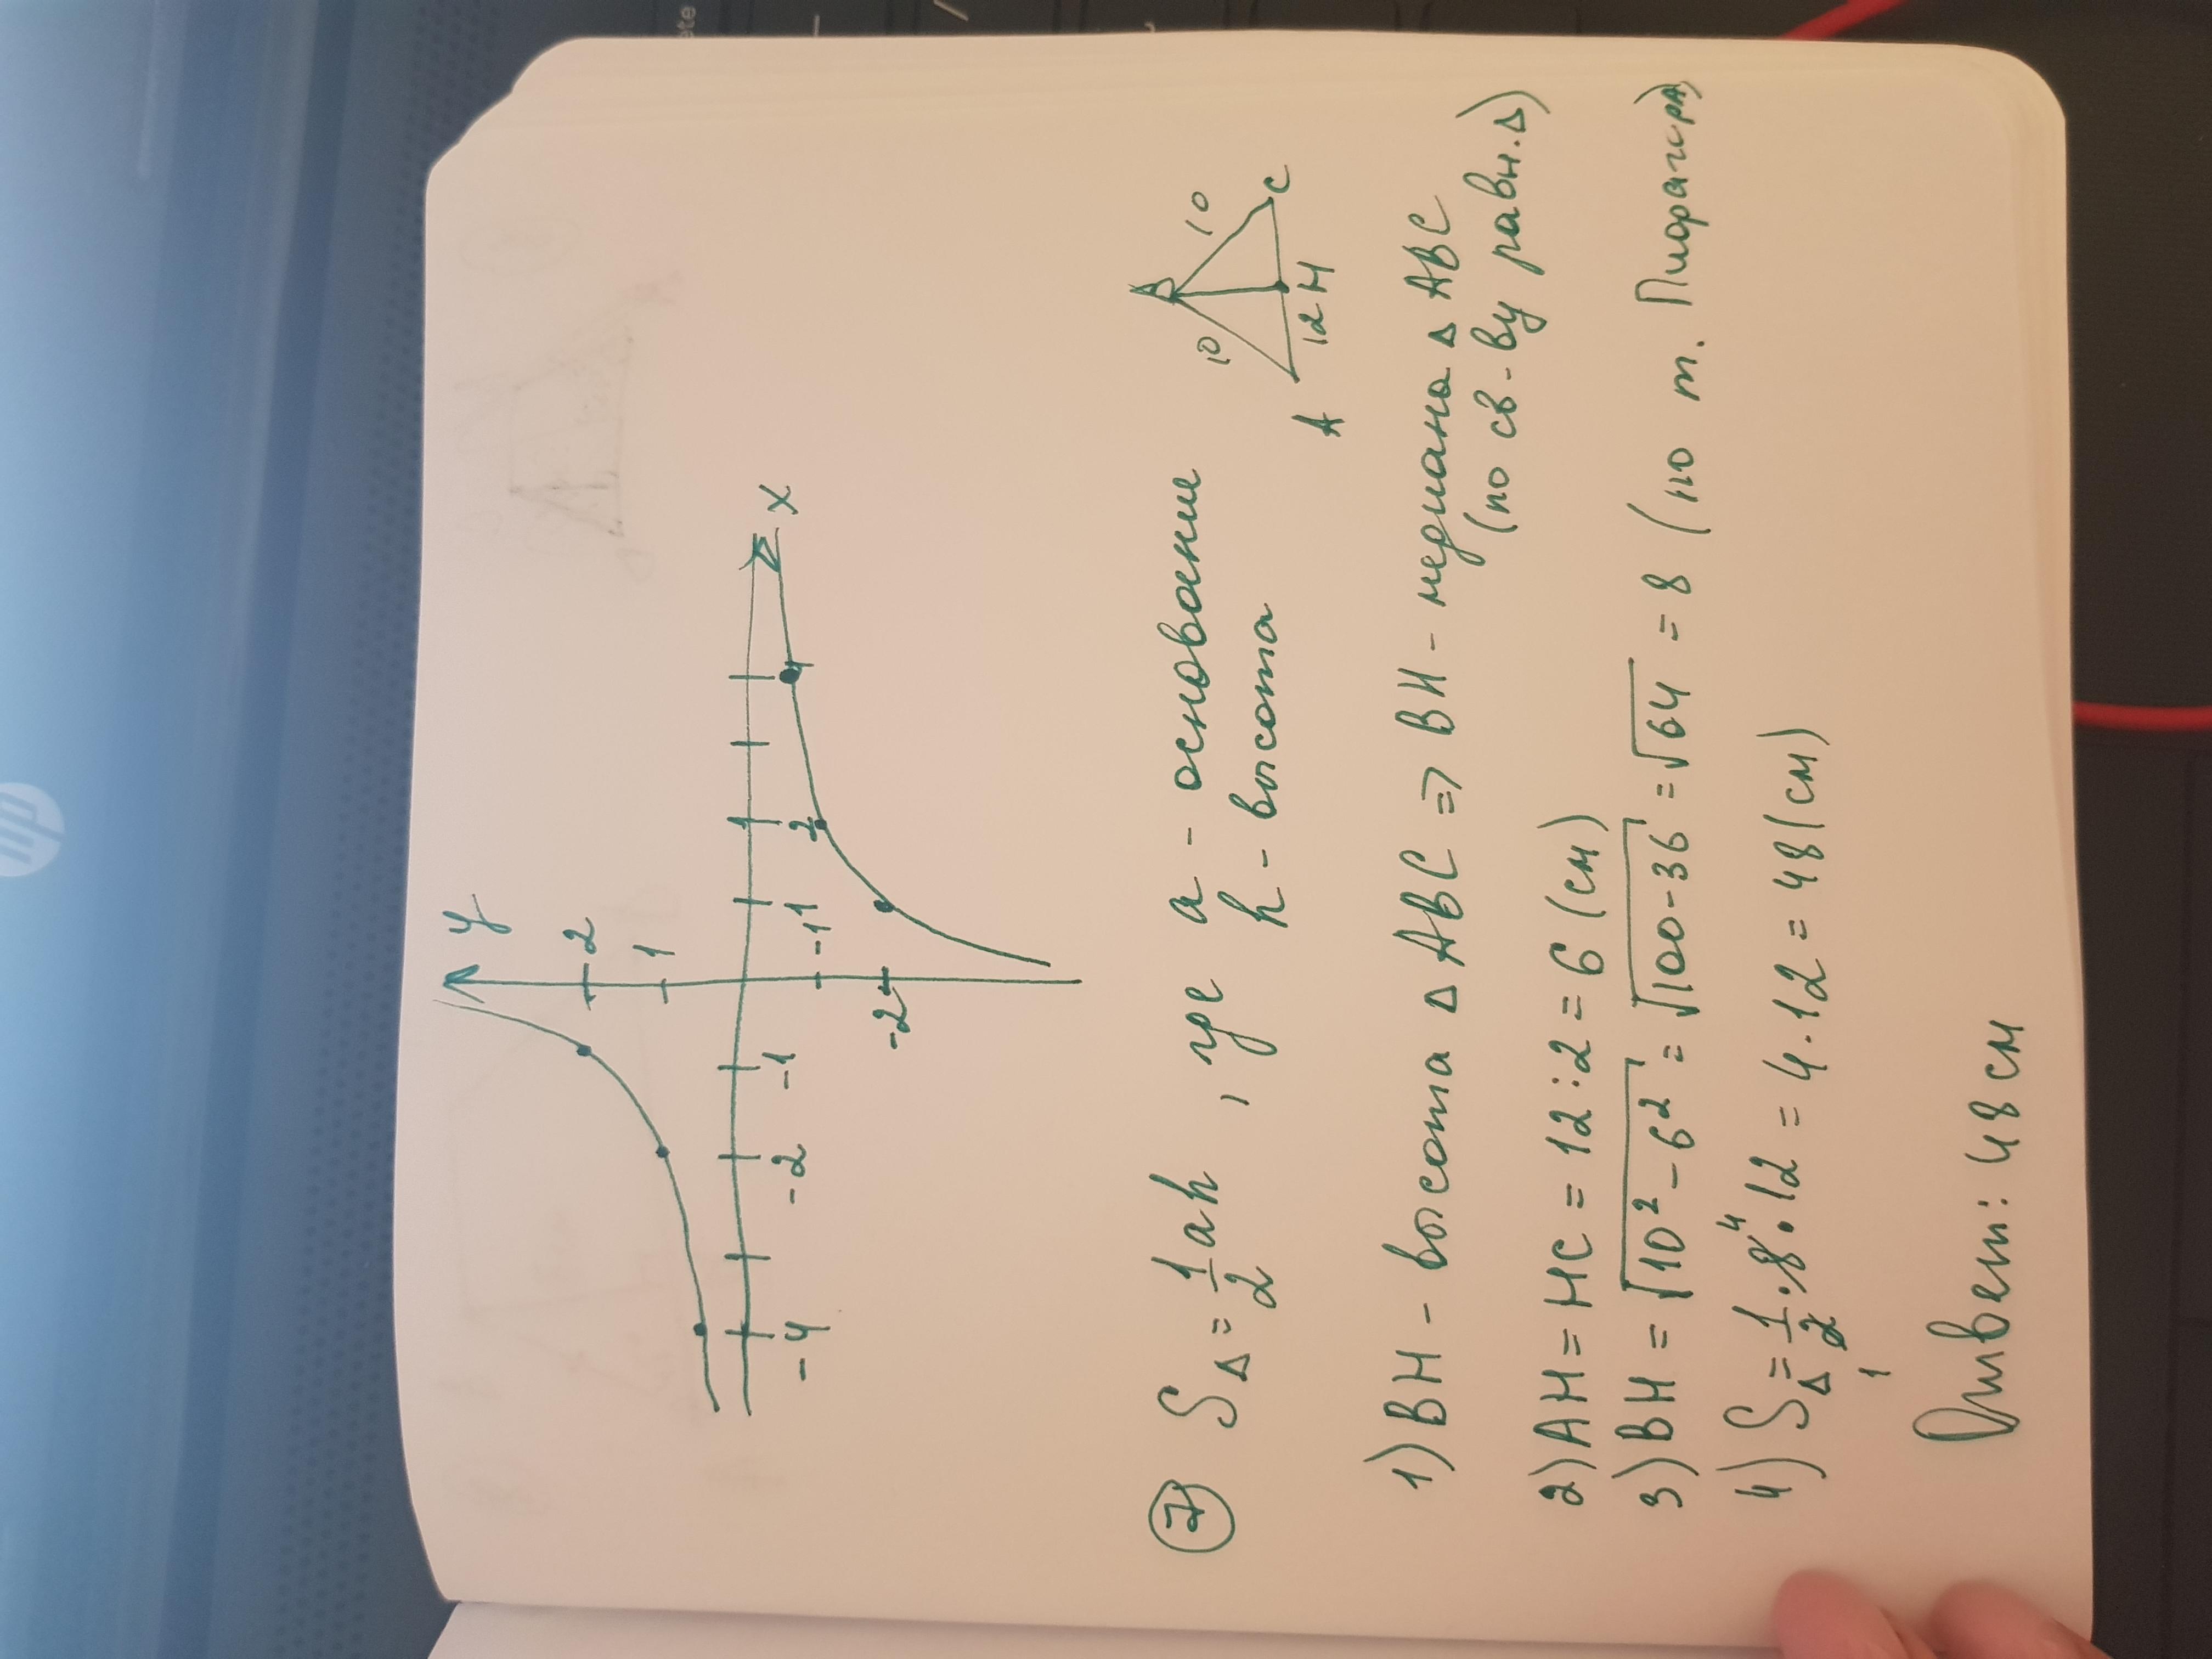 y
2
1
x
-4
-2
-1
1
2
4
-1
-2
7 S△ = 1/2 ah, где a - основание
h - высота
B
10
10
A
12
H
C
1) BH - высота △ ABC => BH - медиана △ ABC
(по св-ву равн. △)
2) AH = HC = 12 : 2 = 6 (см)
3) BH = √10² - 6² = √100-36 = √64 = 8 (по т. Пифагора)
4) S△ = 1/2 · 8 · 12 = 4 · 12 = 48 (см)
4
1
Ответ: 48 см
hp